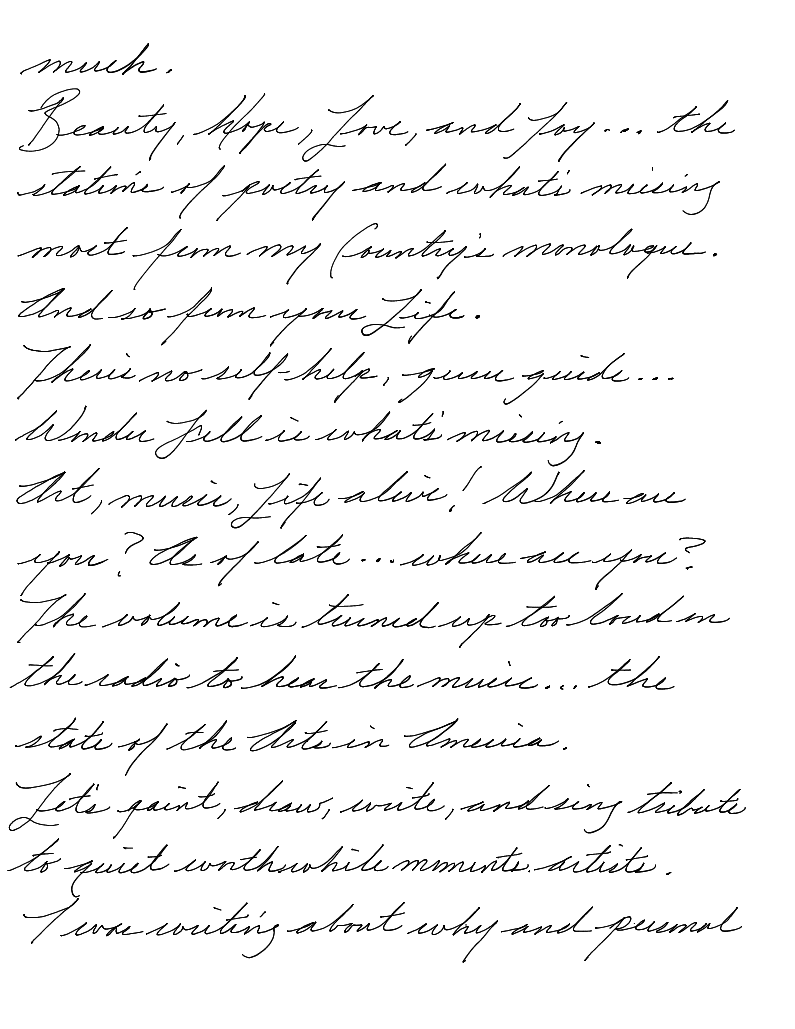 much.
Beauty, Hope, Love, and Joy... the
station's of poetry and what's missing
most from my Country's monologue.
And so from your Life.
There's no self-help, guru guide...
Wonder Full is what's missing.
Art, music, Life alive! Where are
you? As of late... where are you?
The volume is turned up too loud on
the radio to hear the music... the
state of the Arts in America.
Let's paint, draw, write, and sing tribute
to quiet worthwhile moments. artists.
I was writing about why and personal